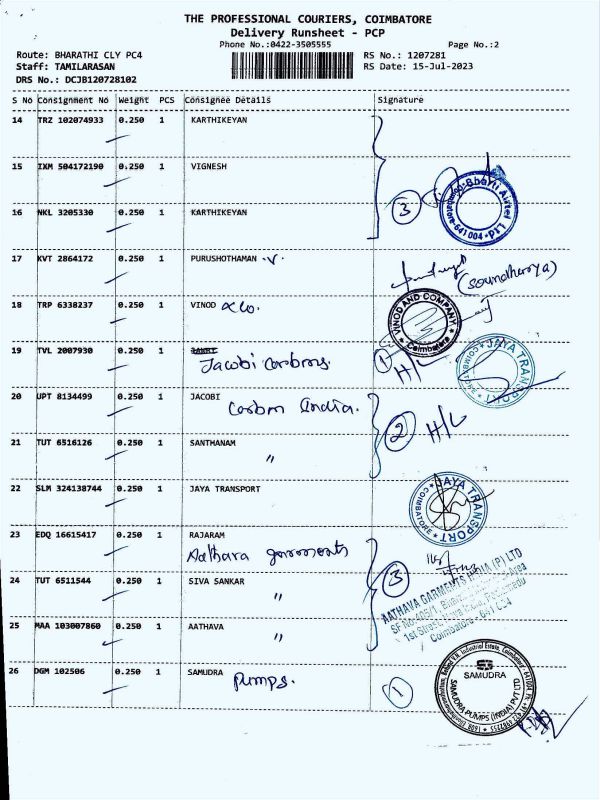 THE PROFESSIONAL COURIERS, COIMBATORE
Delivery Runsheet - PCP
Phone No.:0422-3505555 Page No.:2
Route: BHARATHI CLY PC4 RS No.: 1207281
Staff: TAMILARASAN RS Date: 15-Jul-2023
DRS No.: DCJB120728102
S No Consignment No Weight PCS Consignee Details Signature
14 TRZ 102074933 0.250 1 KARTHIKEYAN
15 IXM 504172190 0.250 1 VIGNESH
3
Bharti Airtel Ltd
641 004
16 NKL 3205330 0.250 1 KARTHIKEYAN
17 KVT 2864172 0.250 1 PURUSHOTHAMAN .V.
(Soundharya)
18 TRP 6338237 0.250 1 VINOD & Co.
VINOD AND COMPANY
Coimbatore
19 TVL 2007930 0.250 1
Jacobi Carbons.
1 H/L
JAYA TRANSPORT
COIMBATORE
20 UPT 8134499 0.250 1 JACOBI
Carbon India.
2 H/L
21 TUT 6516126 0.250 1 SANTHANAM
"
22 SLM 324138744 0.250 1 JAYA TRANSPORT
JAYA TRANSPORT
COIMBATORE
23 EDQ 16615417 0.250 1 RAJARAM
Aathava garments
3
AATHAVA GARMENTS INDIA (P) LTD
SF No 405/1,
1st Street,
Coimbatore
24 TUT 6511544 0.250 1 SIVA SANKAR
"
25 MAA 103007860 0.250 1 AATHAVA
"
26 DGM 102506 0.250 1 SAMUDRA
Pumps.
1
SAMUDRA
SAMUDRA PUMPS (INDIA) PVT LTD